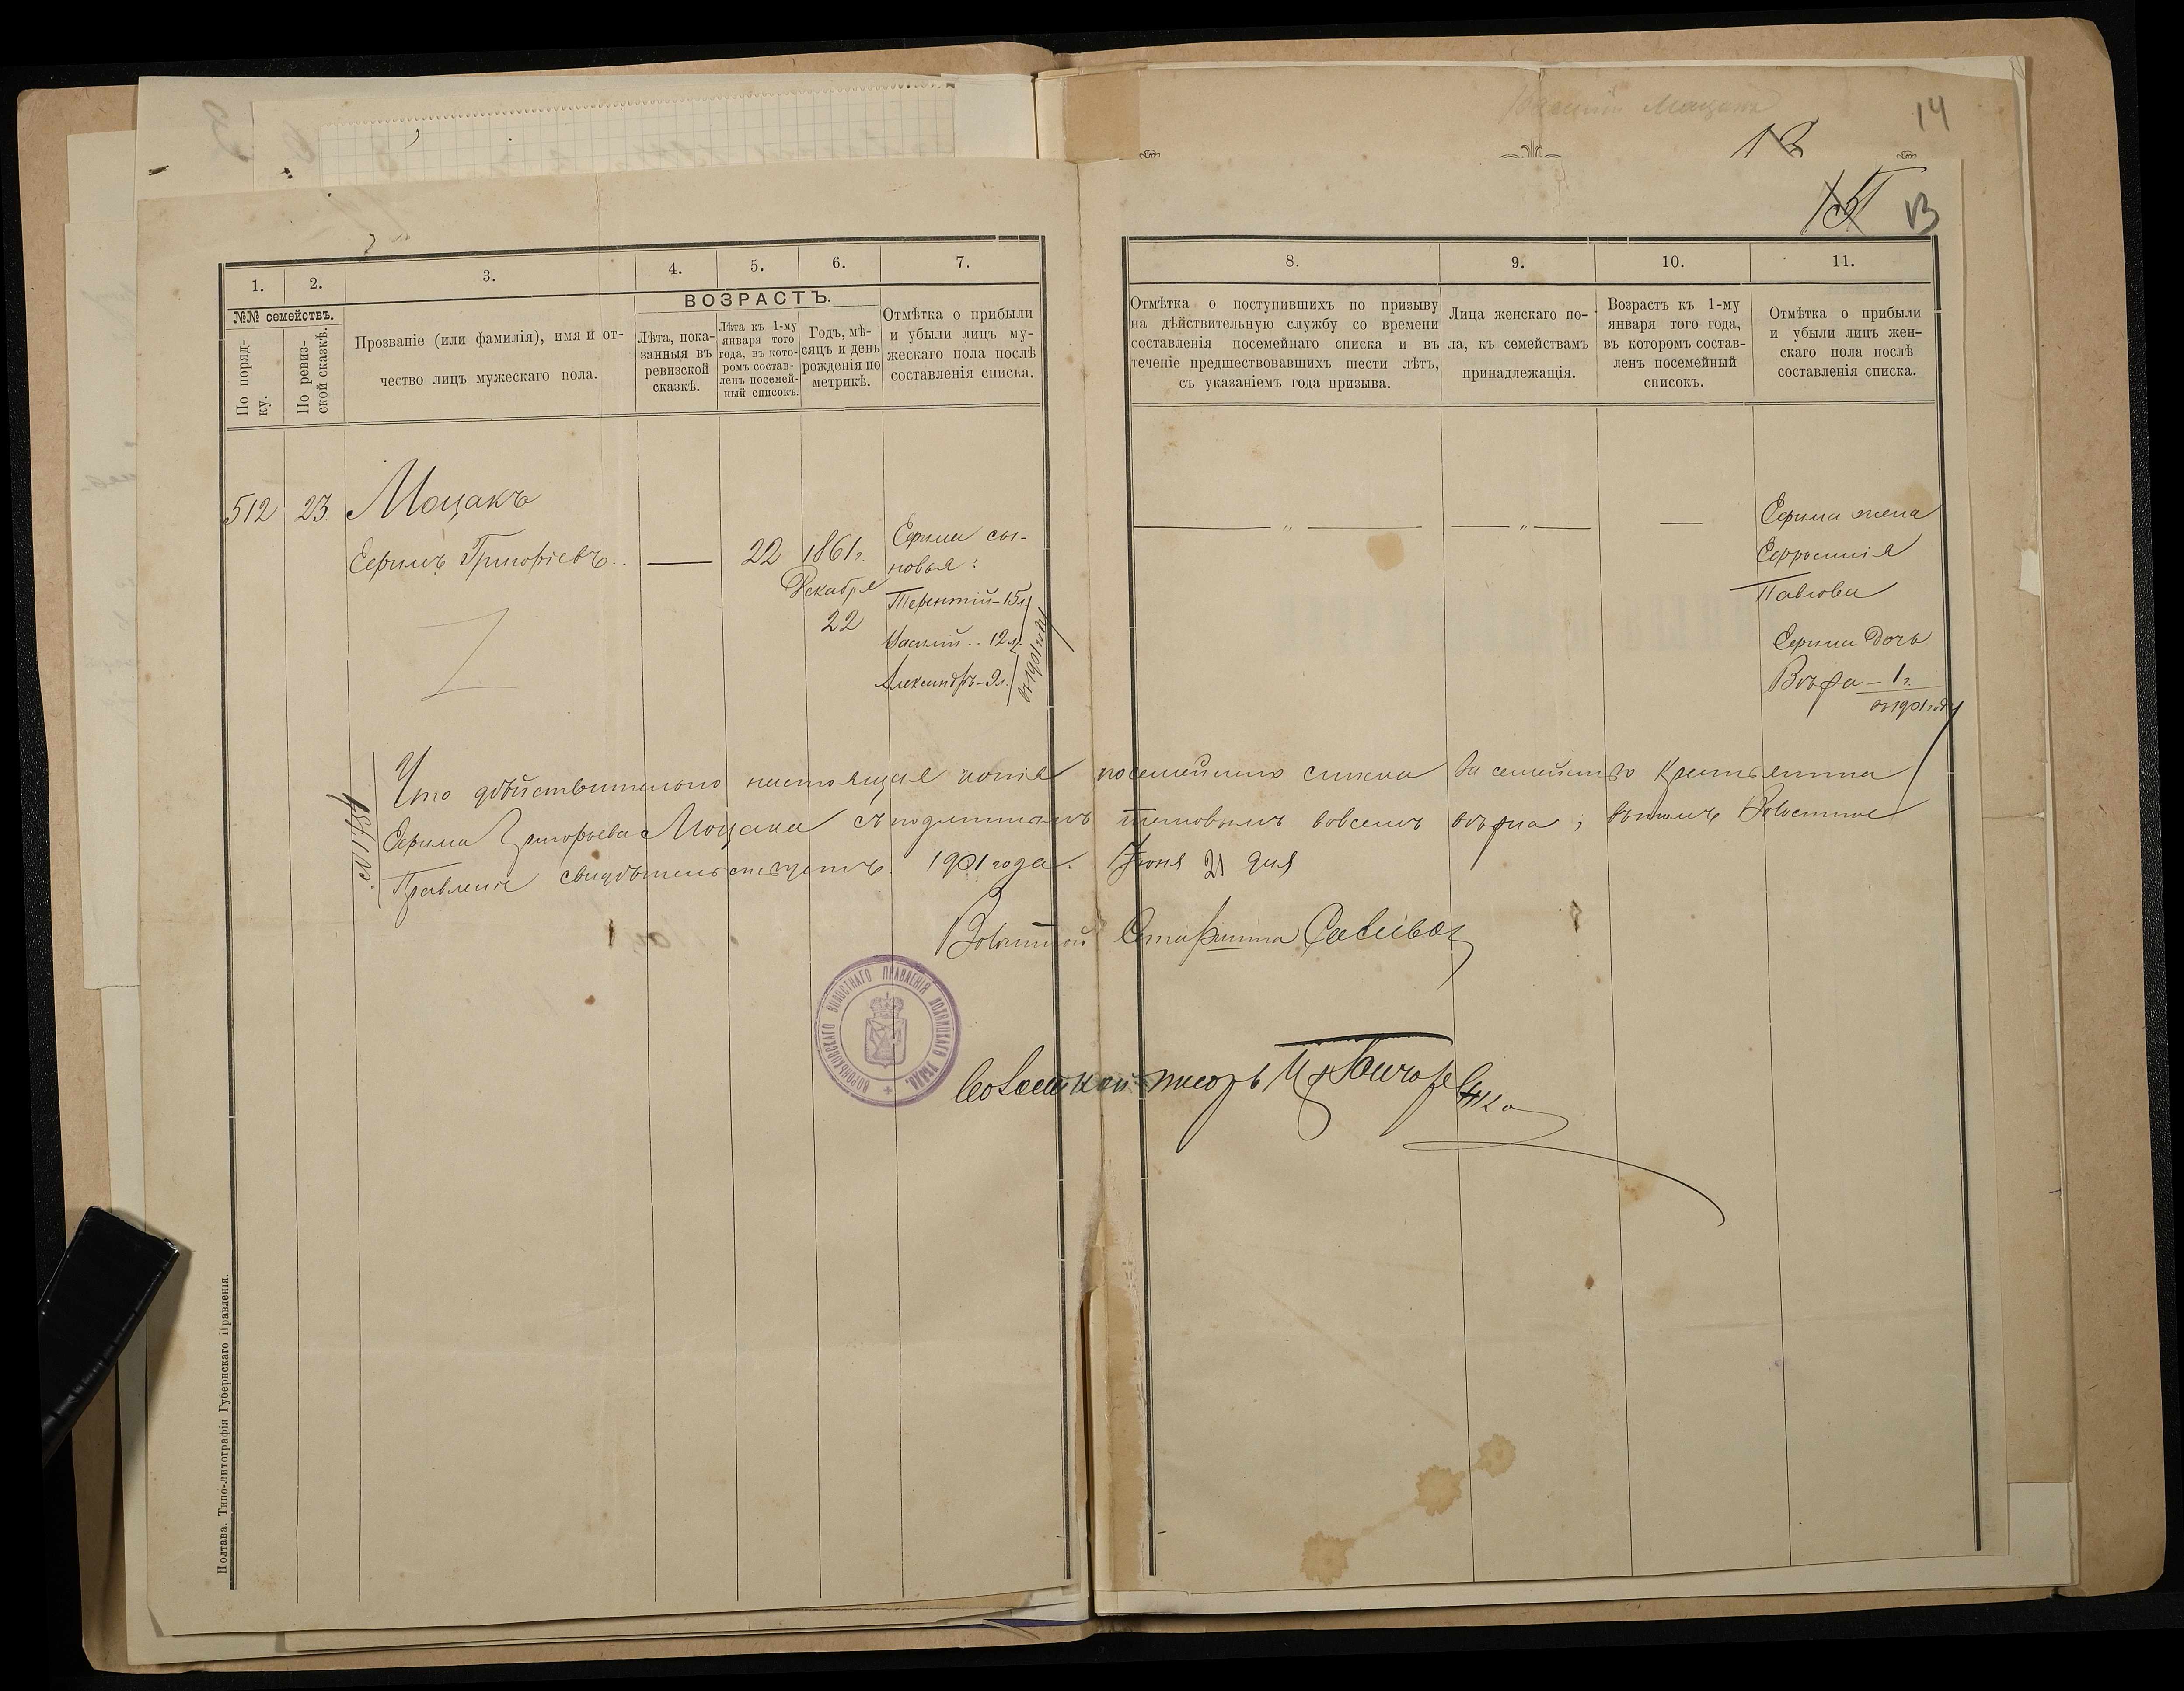 14
13
1. 2. 3. 4. 5. 6. 7. 8. 9. 10. 11.
№№ семействъ.
По поряд-
ку.
По ревиз-
ской сказкѣ.
Прозваніе (или фамилія), имя и от-
чество лицъ мужескаго пола.
ВОЗРАСТЪ.
Лѣта, пока-
занныя въ
ревизской
сказкѣ.
Лѣта къ 1-му
января того
года, въ кото-
ромъ состав-
ленъ посемей-
ный списокъ.
Годъ, мѣ-
сяцъ и день
рожденія по
метрикѣ.
Отмѣтка о прибыли
и убыли лицъ му-
жескаго пола послѣ
составленія списка.
Отмѣтка о поступившихъ по призыву
на дѣйствительную службу со времени
составленія посемейнаго списка и въ
теченіе предшествовавшихъ шести лѣтъ,
съ указаніемъ года призыва.
Лица женскаго по-
ла, къ семействамъ
принадлежащія.
Возрастъ къ 1-му
января того года,
въ которомъ состав-
ленъ посемейный
списокъ.
Отмѣтка о прибыли
и убыли лицъ жен-
скаго пола послѣ
составленія списка.
512 23. Моцакъ
Ефимъ Григоріевъ.. — 22 1861 г.
Декабря
22
Ефима сы-
новья:
Терентій - 15 л.
Василій .. 12 л.
Александръ - 9 л.
въ 1901 году
— „ — — „ — —
Ефима жена
Ефросинія
Павлова
Ефима дочь
Вѣра — 1 г.
въ 1901 году
Что дѣйствительно настоящая копія посемейнаго списка на семейство крестьянина
Ефима Григорьева Моцака съ подлиннымъ таковымъ вовсемъ вѣрна, въ томъ Волостное
Правленіе свидѣтельствуетъ. 1901 года. Іюня 21 дня
Волостной Старшина
Волостной писарь
ВОРОНЬКОВСКАГО ВОЛОСТНАГО ПРАВЛЕНІЯ ЛОХВИЦКАГО УѢЗД.
Полтава. Типо-литографія Губернскаго Правленія.